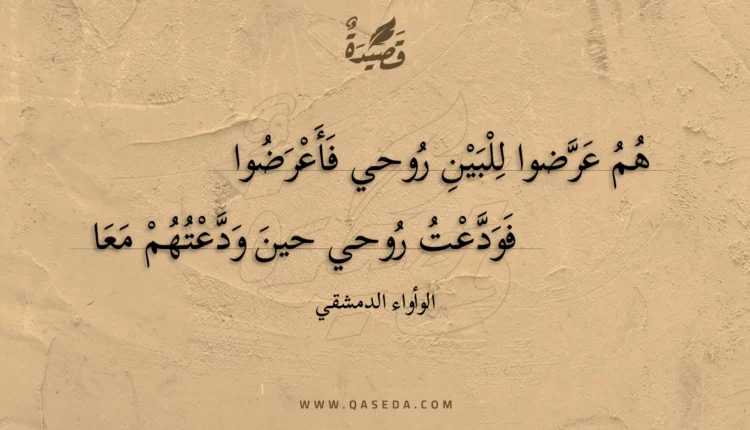 قَصِيدَةٌ
هُمُ عَرَّضوا لِلْبَيْنِ رُوحي فَأَعْرَضُوا
فَوَدَّعْتُ رُوحي حينَ وَدَّعْتُهُمْ مَعَا
الوأواء الدمشقي
WWW.QASEDA.COM